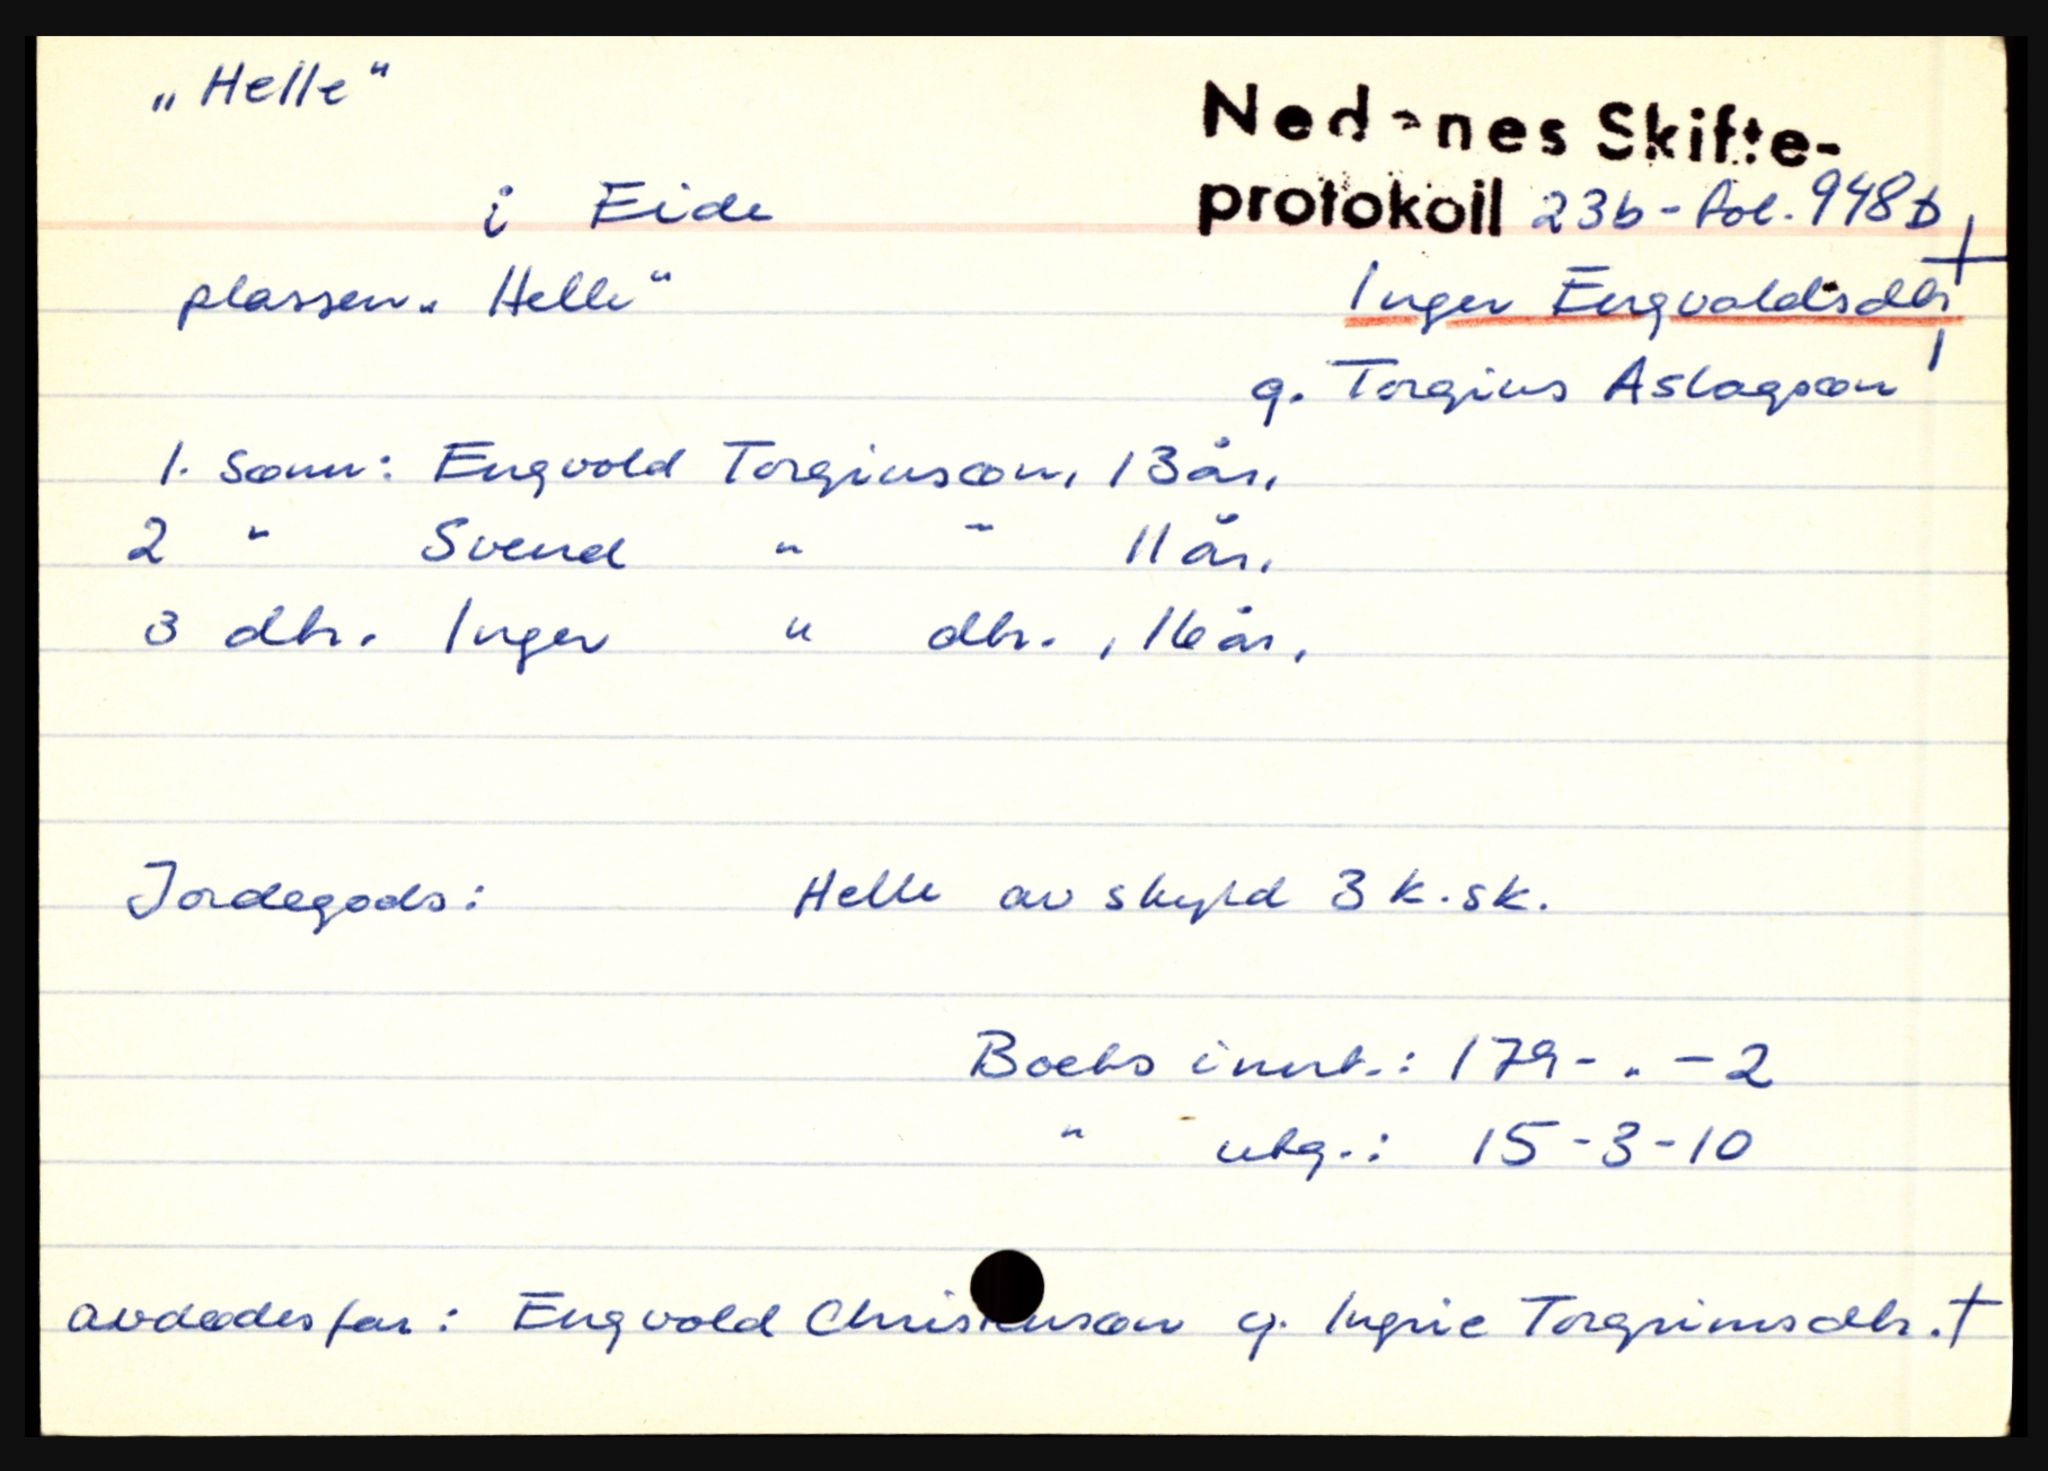 „Helle“
Nedenes Skifte-
i Eide
protokoll 23b - fol. 948b
plassen „Helle“
Inger Engvoldsdtr +
g. Torgius Aslagsøn
1. sønn: Engvold Torgiussøn, 13 år,
2 " Svend " " 11 år,
3 dtr. Inger " dtr. , 16 år,
Jordegods: Helle av skyld 3 k.sk.
Boets innt.: 179 - " - 2
" utg.: 15 - 3 - 10
avdødes far: Engvold Christensøn g. Ingrie Torgrimsdtr. +